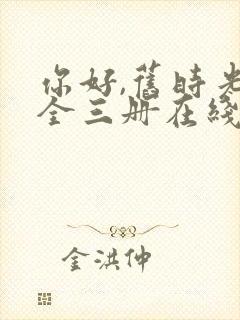 你好,舊時光
全三册在綫
金洪仲